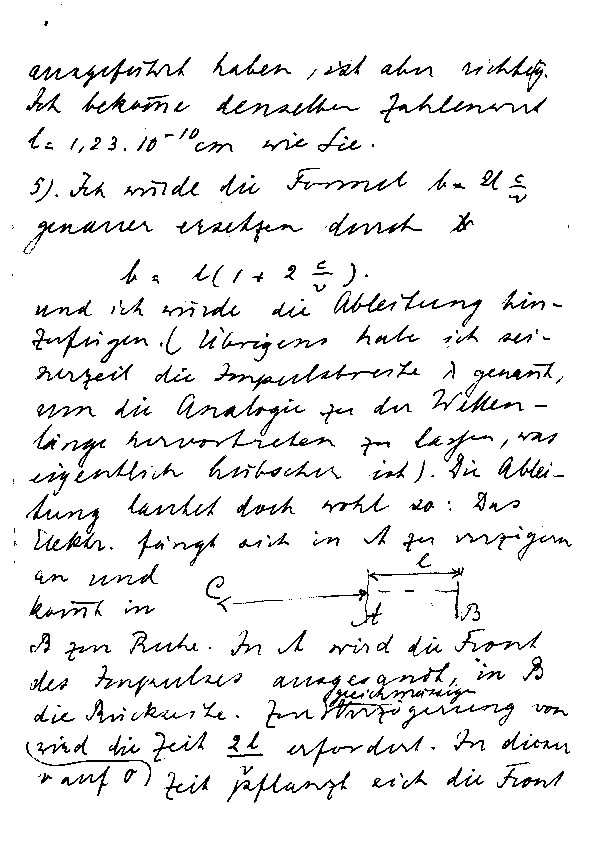 ausgeführt haben, ist aber richtig.
Ich bekom̅e denselben Zahlenwert
l = 1,23·10⁻¹⁰ cm wie Sie.
5). Ich würde die Formel b = 2l c/v
genauer ersetzen durch
b = l(1 + 2 c/v).
und ich würde die Ableitung hin-
zufügen. (Übrigens habe ich sei-
nerzeit die Impulsbreite λ genan̅t,
um die Analogie zu der Wellen-
länge hervortreten zu lassen, was
eigentlich hübscher ist). Die Ablei-
tung lautet doch wohl so: Das
Elektr. fängt sich in A zu verzögern
an und
kom̅t in
C A l B
B zur Ruhe. In A wird die Front
des Impulses ausgesandt, in B
die Rückseite. Zur gleichmässigen Verzögerung von
v auf 0
wird die Zeit 2l/v erfordert. In dieser
Zeit pflanzt sich die Front